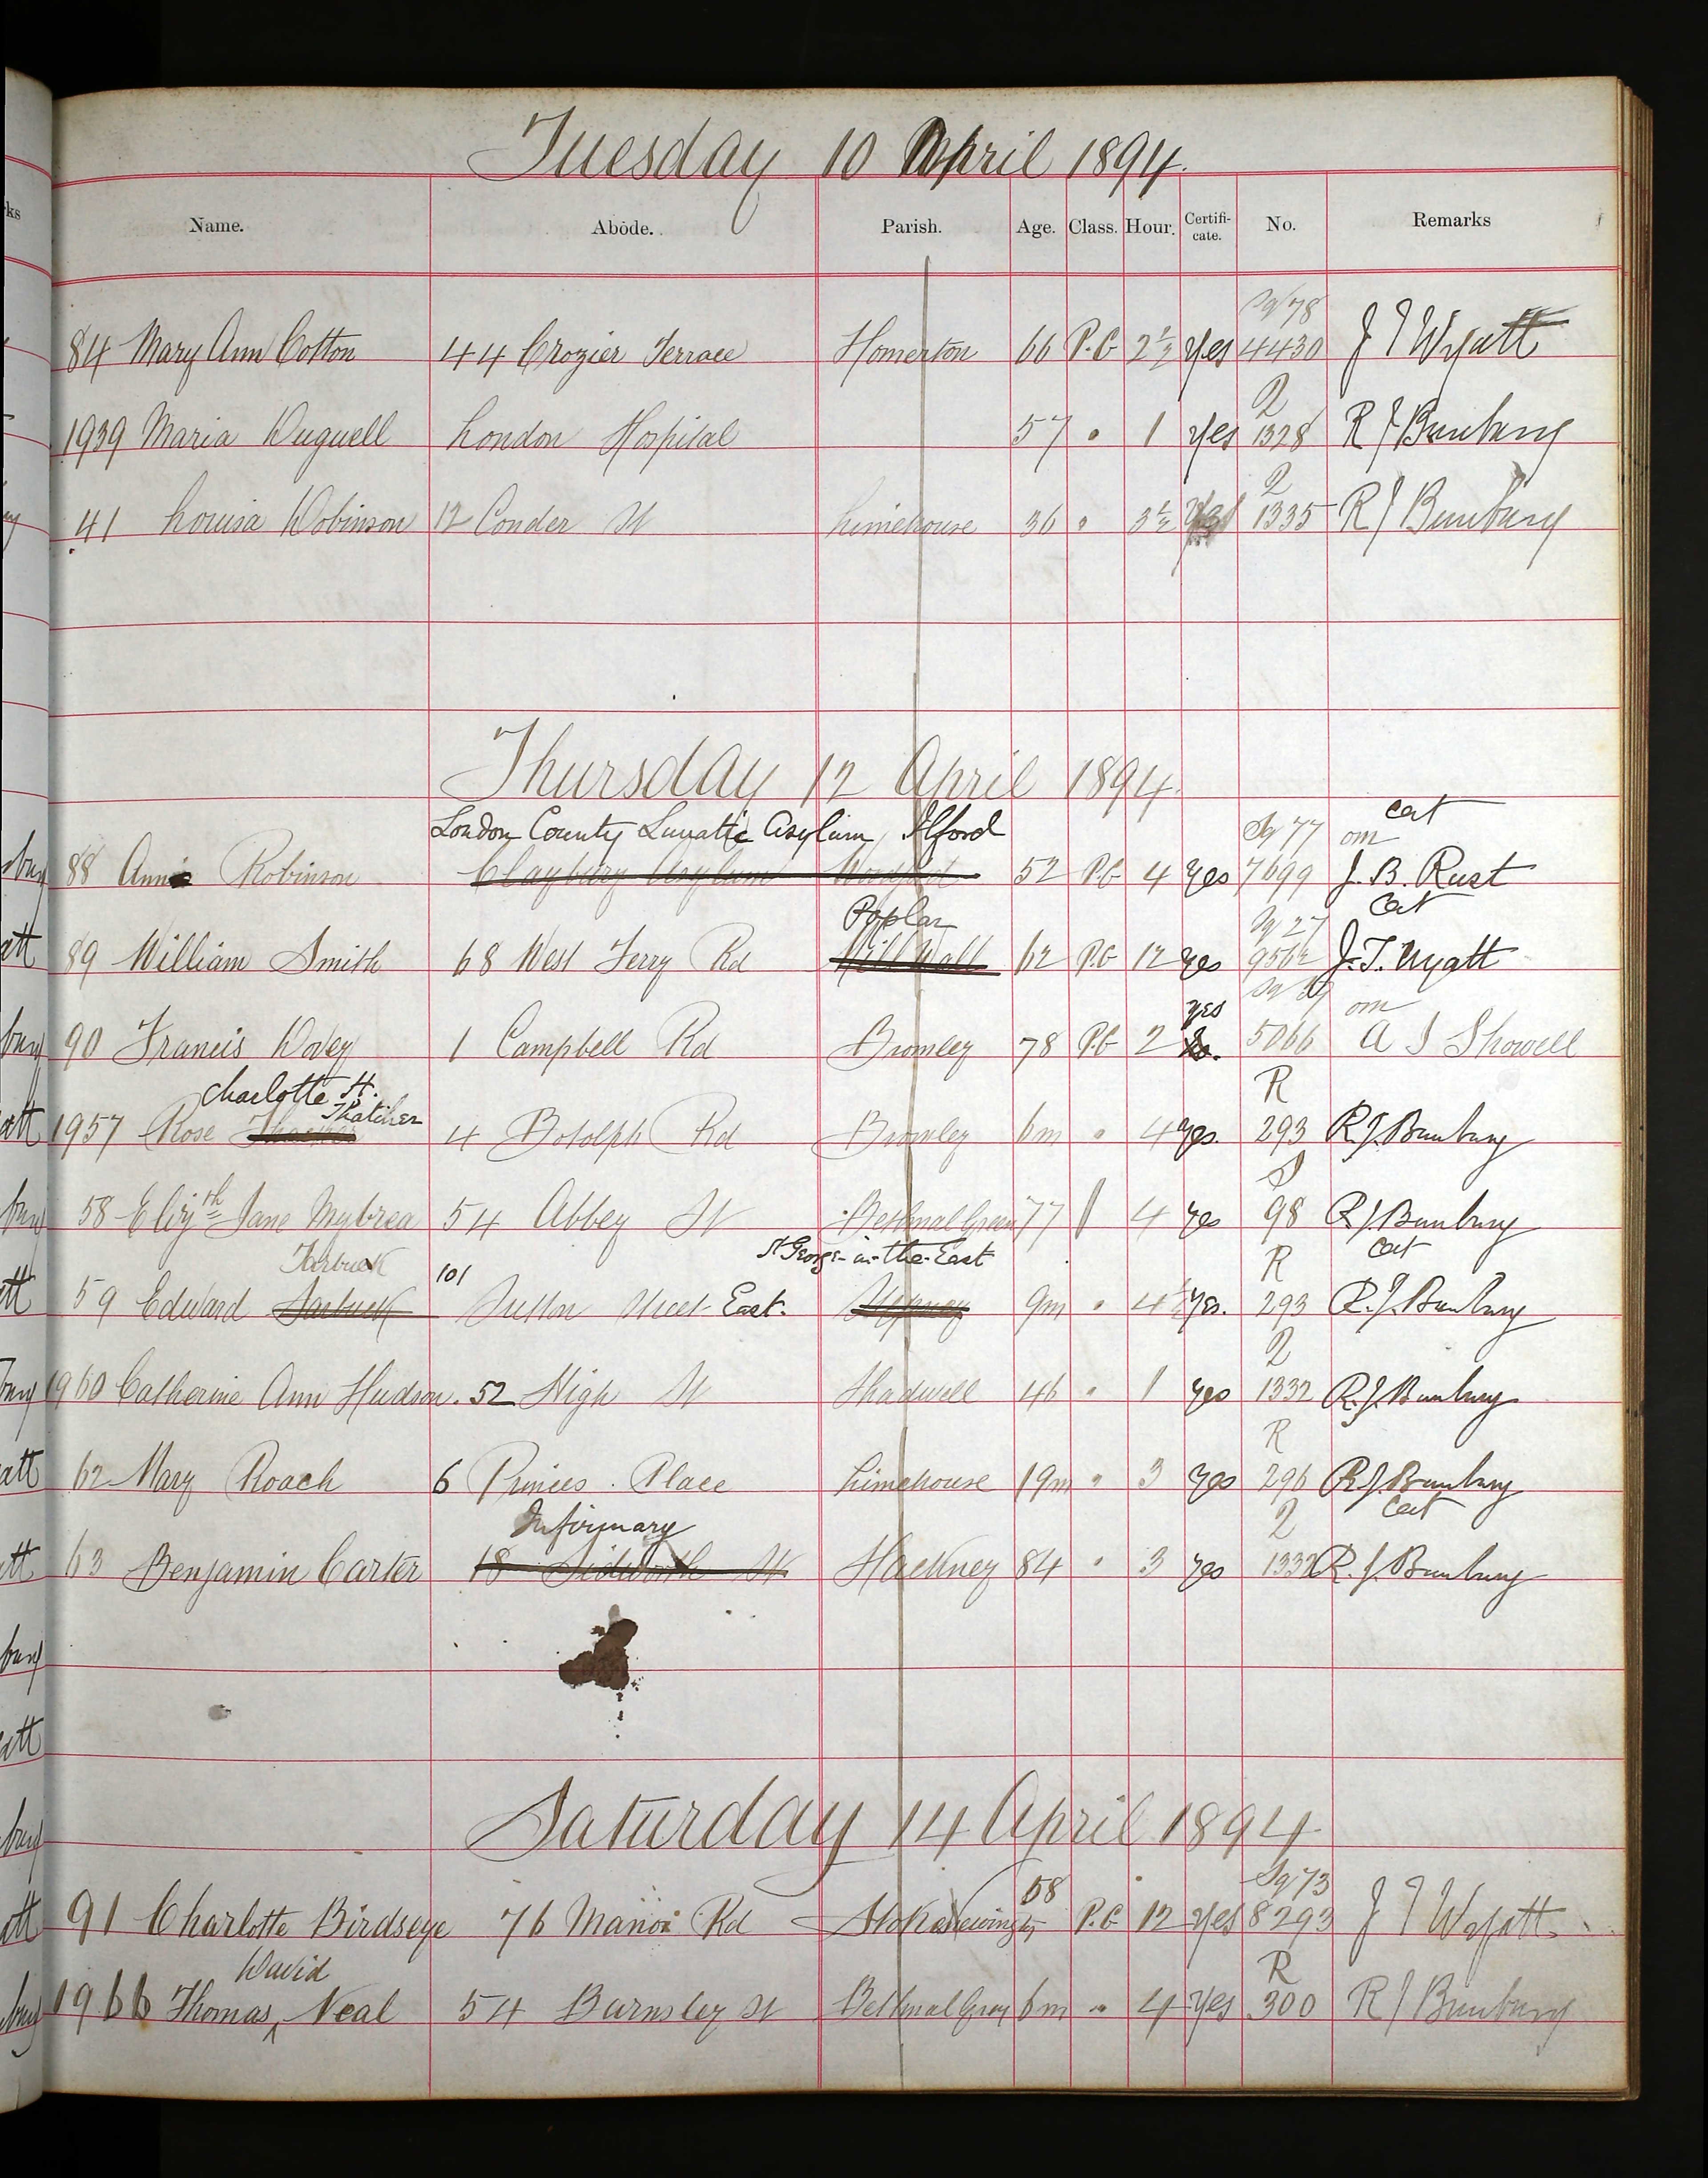 Tuesday 10 April 1894.
Name. Abode. Parish. Age. Class. Hour. Certifi-cate. No. Remarks
Sq 78
84 Mary Ann Cotton 44 Crozier Terrace Homerton 66 P.G 2½ Yes 4430 J T Wyatt
Q
1939 Maria Duguell London Hospital 57 " 1 Yes 1328 R J Bunbury
Q
41 Louisa Dobinson 12 Conder St Limehouse 36 " 3½ Yes 1335 R J Bunbury
Thursday 12 April 1894.
London County Lunatic Asylum Ilford Sq 77 om cert
88 Ann Robinson Claybury Asylum Woodford 52 P.G 4 Yes 7699 J. B. Rust
Poplar Sq 27 Cert
89 William Smith 68 West Ferry Rd Mill Wall 62 P.G 12 Yes 9562 J. T. Wyatt
yes Sq om
90 Francis Dovey 1 Campbell Rd Bromley 78 P.G 2 5066 A J Showell
Charlotte H. Thatcher R
1957 Rose 4 Botolph Rd Bromley 6m " 4 Yes. 293 R. J. Bunbury
S
58 Elizth Jane Mybrea 54 Abbey St Bethnal Green 77 4 Yes 98 R. J. Bunbury
Tarbuck 101 St George-in-the-East R Cert
59 Edward Sarbuck Sutton Street East. Stepney 9m " 4½ Yes. 293 R. J. Bunbury
Q
1960 Catherine Ann Hudson. 52 High St Shadwell 46 " 1 Yes 1332 R. J. Bunbury
R
62 Mary Roach 6 Princes Place Limehouse 19m " 3 Yes 296 R. J. Bunbury
Infirmary Q Cert
63 Benjamin Carter 18 Sidworth St Hackney 84 " 3 Yes 1332 R. J. Bunbury
Saturday 14 April 1894
58 Sq 73
91 Charlotte Birdseye 76 Manor Rd Stoke Newington P.G 12 Yes 8293 J T Wyatt.
David R
1966 Thomas ‸ Neal 54 Barnsley St Bethnal Grn 6m " 4 Yes 300 R J Bunbury